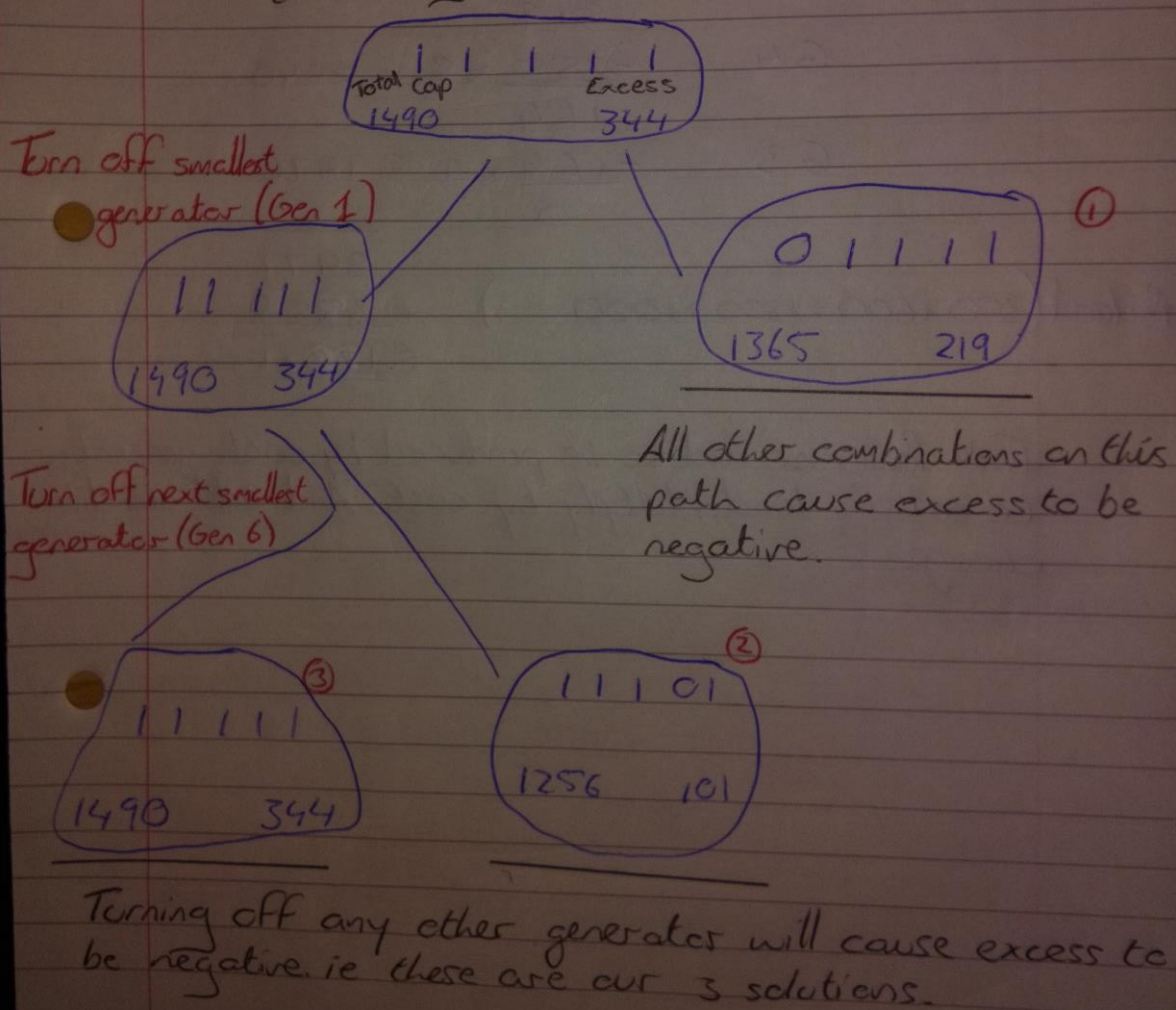 1 1 1 1 1
Total Cap Excess
1490 344
Turn off smallest
generator (Gen 1)
1 1 1 1 1
1490 344
①
0 1 1 1 1
1365 219
All other combinations on this
path cause excess to be
negative.
Turn off next smallest
generator (Gen 6)
③
1 1 1 1 1
1490 344
②
1 1 1 0 1
1256 101
Turning off any other generator will cause excess to
be negative. ie these are our 3 solutions.